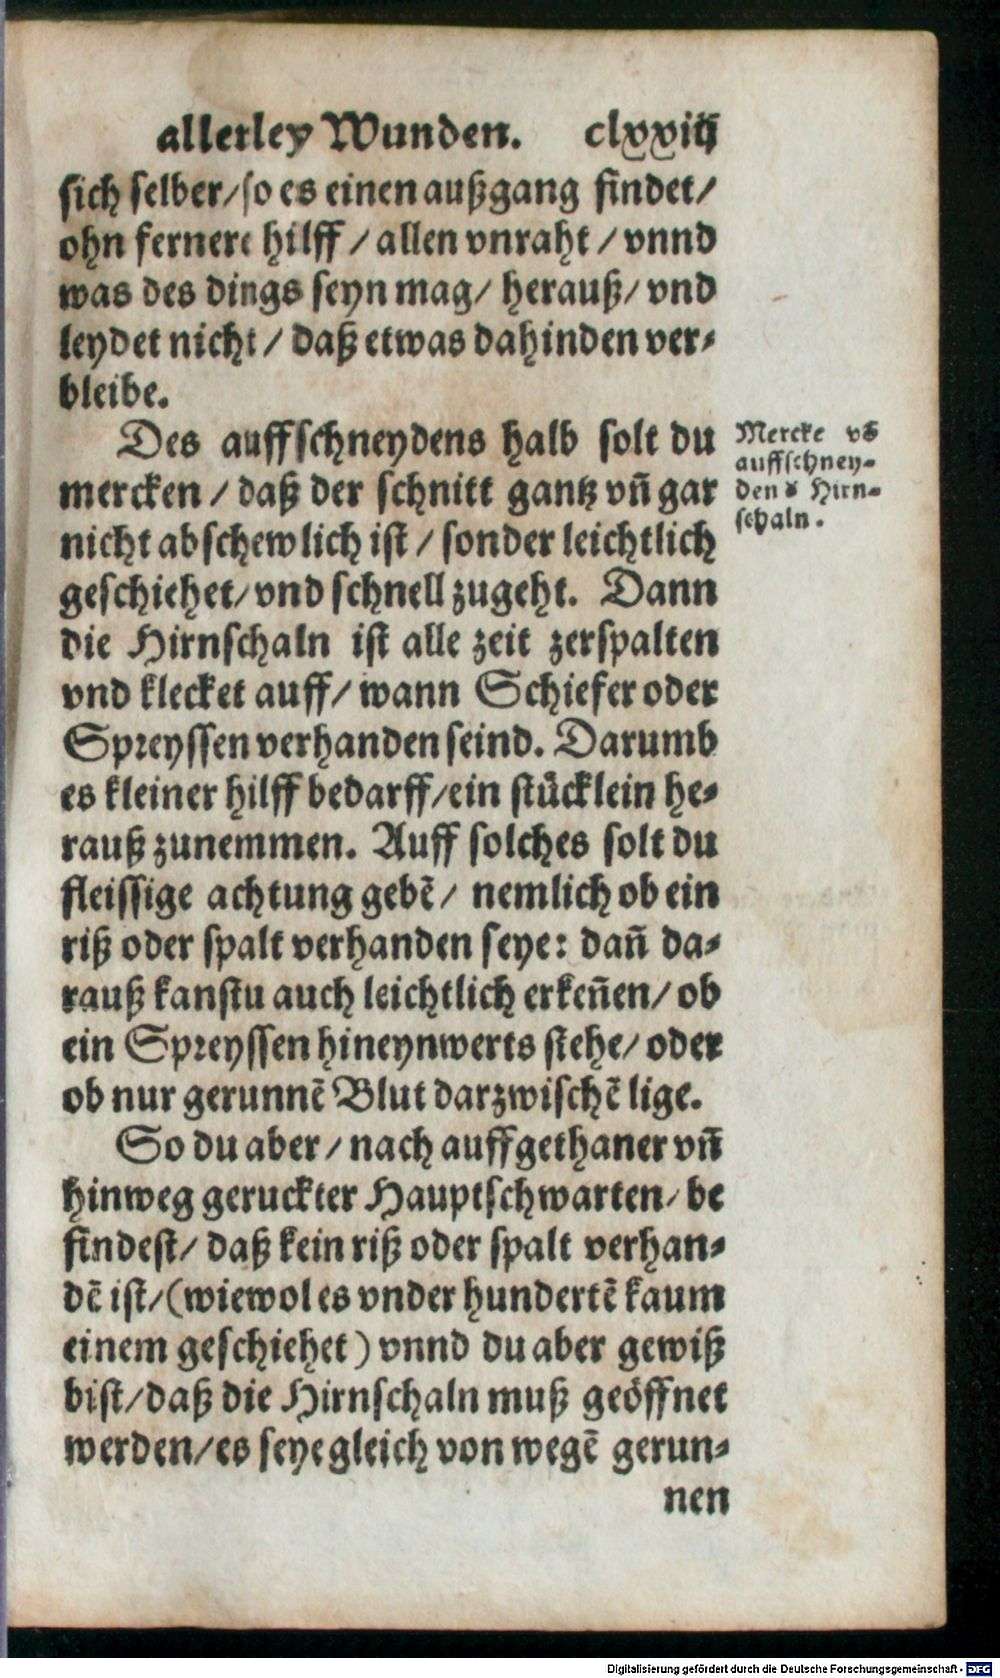 allerley Wunden. clxxiij
sich selber/so es einen außgang findet/
ohn fernere hilff / allen vnraht / vnnd
was des dings seyn mag/ herauß/ vnd
leydet nicht / daß etwas dahinden ver-
bleibe.
Des auffschneydens halb solt du
mercken / daß der schnitt gantz vñ gar
nicht abschewlich ist / sonder leichtlich
geschiehet/ vnd schnell zugeht. Dann
die Hirnschaln ist alle zeit zerspalten
vnd klecket auff/ wann Schiefer oder
Spreyssen verhanden seind. Darumb
es kleiner hilff bedarff/ein stücklein he-
rauß zunemmen. Auff solches solt du
fleissige achtung gebẽ / nemlich ob ein
riß oder spalt verhanden seye: dañ da-
rauß kanstu auch leichtlich erkeñen/ ob
ein Spreyssen hineynwerts stehe/ oder
ob nur gerunnẽ Blut darzwischẽ lige.
So du aber / nach auffgethaner vñ
hinweg geruckter Hauptschwarten/ be
findest/ daß kein riß oder spalt verhan-
dẽ ist/(wiewol es vnder hundertẽ kaum
einem geschiehet) vnnd du aber gewiß
bist/daß die Hirnschaln muß geöffnet
werden/es seye gleich von wegẽ gerun-
nen
Mercke võ
auffschney-
den d' Hirn-
schaln.
Digitalisierung gefördert durch die Deutsche Forschungsgemeinschaft - DFG